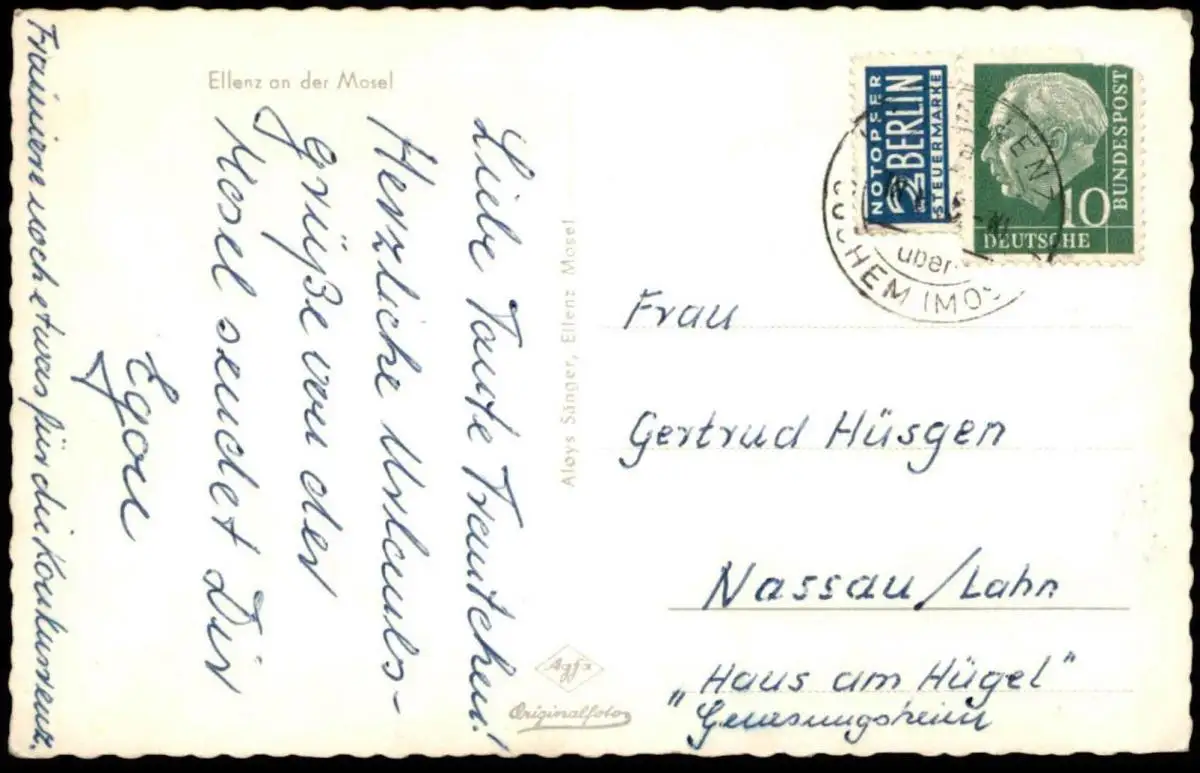 Ellenz an der Mosel
Liebe Tante Trautchen!
Herzliche Urlaubs-
grüße von der
Mosel sendet Dir
Egon
Trainiere noch etwas für die Konkurrenz.
Aloys Sänger, Ellenz Mosel
Agfa
Originalfoto
NOTOPFER
2 BERLIN
STEUERMARKE
10
DEUTSCHE
BUNDESPOST
über
COCHEM (MOS
Frau
Gertrud Hüsgen
Nassau/Lahn
„Haus am Hügel"
Genesungsheim